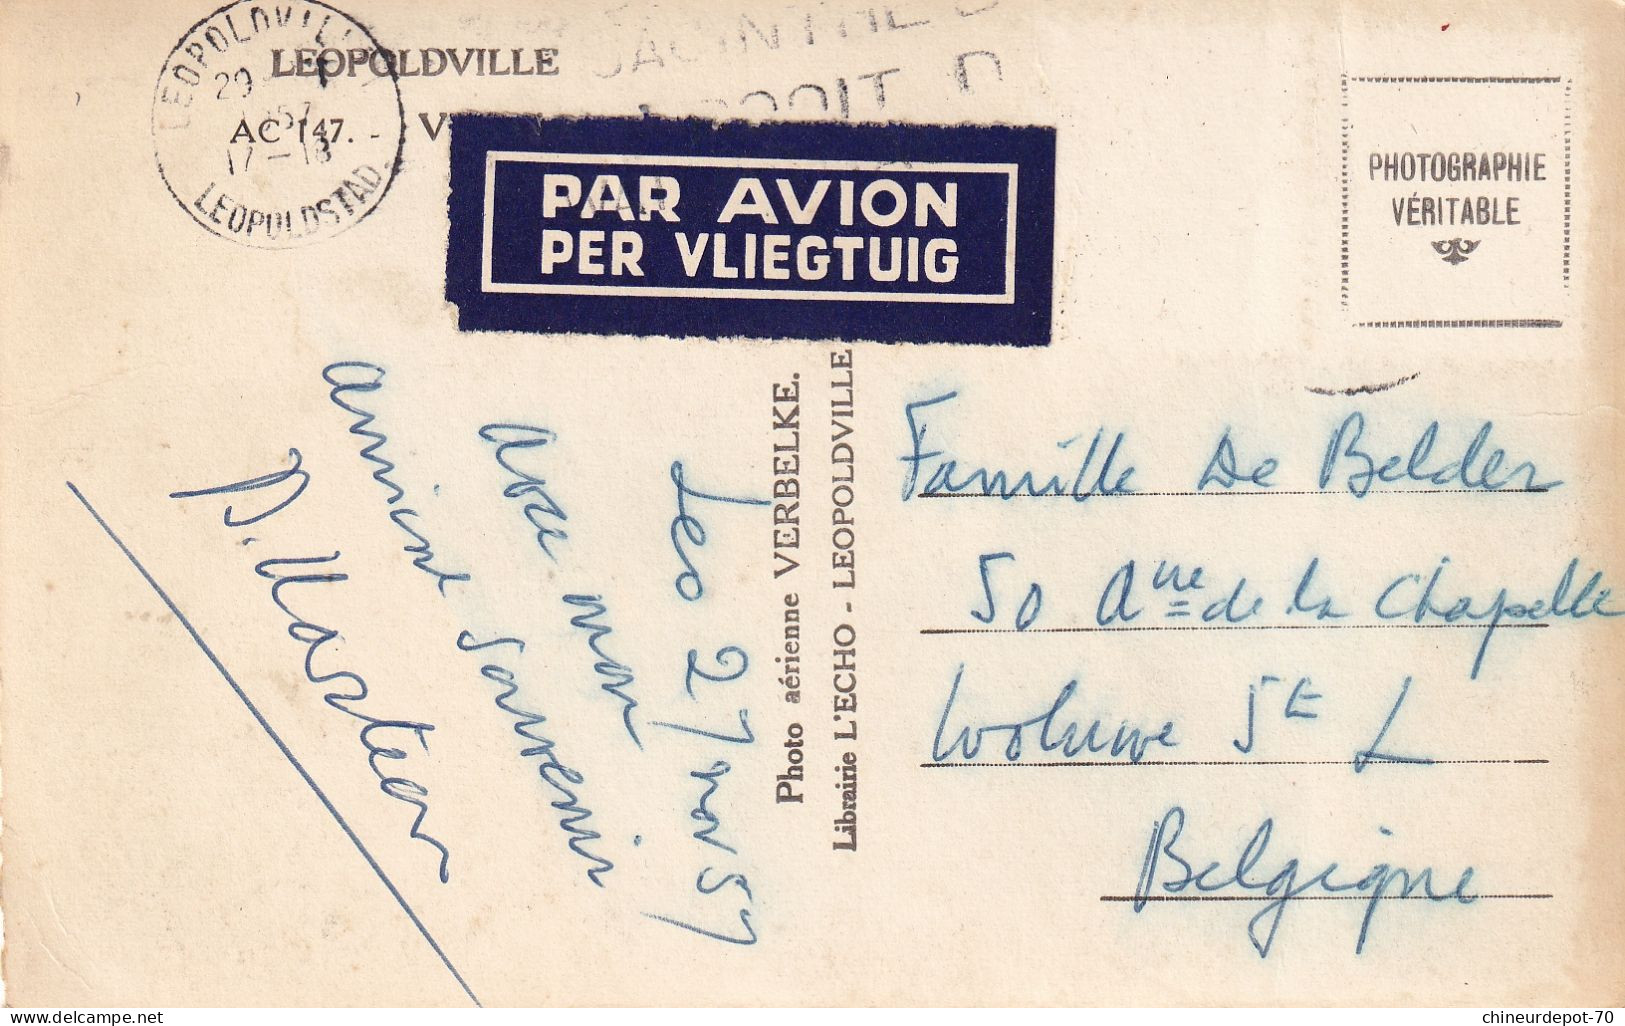 LEOPOLDVILLE
AC 147. -
LEOPOLDVILLE
29
1957
17-18
LEOPOLDSTAD.
JACINTHE D
DROIT D
PAR AVION
PER VLIEGTUIG
PHOTOGRAPHIE
VÉRITABLE
Leo 27 nov 57
avec mon
amical souvenir
D. Marteau
Photo aérienne VERBELKE.
Librairie L'ECHO - LEOPOLDVILLE
Famille De Belder
50 Ave de la Chapelle
Woluwe St L
Belgique
chineurdepot-70
delcampe.net